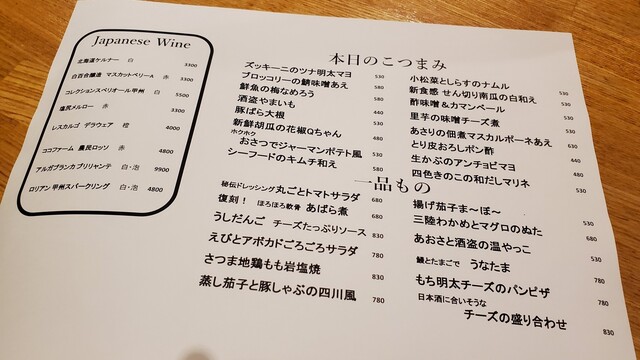 Japanese Wine
北海道ケルナー 白 3300
白百合醸造 マスカットベリーA 赤 3300
コレクションスペリオール甲州 白 5500
塩尻メルロー 赤 3300
レスカルゴ デラウェア 橙 4000
ココファーム 農民ロッソ 赤 4800
アルガブランカ ブリリャンテ 白・泡 9900
ロリアン 甲州スパークリング 白・泡 4800
本日のこつまみ
ズッキーニのツナ明太マヨ 530
ブロッコリーの鯖味噌あえ 580
鮮魚の梅なめろう 580
酒盗やまいも 440
豚ばら大根 440
新鮮胡瓜の花椒Qちゃん 480
ホクホク
おさつでジャーマンポテト風 530
シーフードのキムチ和え 580
小松菜としらすのナムル 530
新食感 せん切り南瓜の白和え 530
酢味噌&カマンベール 530
里芋の味噌チーズ煮 530
あさりの佃煮マスカルポーネあえ 630
とり皮おろしポン酢 440
生かぶのアンチョビマヨ 440
四色きのこの和だしマリネ 530
一品もの
秘伝ドレッシング 丸ごとトマトサラダ 680
復刻! ほろほろ軟骨 あばら煮 680
うしだんご チーズたっぷりソース 830
えびとアボカドごろごろサラダ 780
さつま地鶏もも岩塩焼 830
蒸し茄子と豚しゃぶの四川風 780
揚げ茄子ま~ぼ~ 530
三陸わかめとマグロのぬた 680
あおさと酒盗の温やっこ 530
鰻とたまごで うなたま 780
もち明太チーズのパンピザ 780
日本酒に合いそうな
チーズの盛り合わせ 830